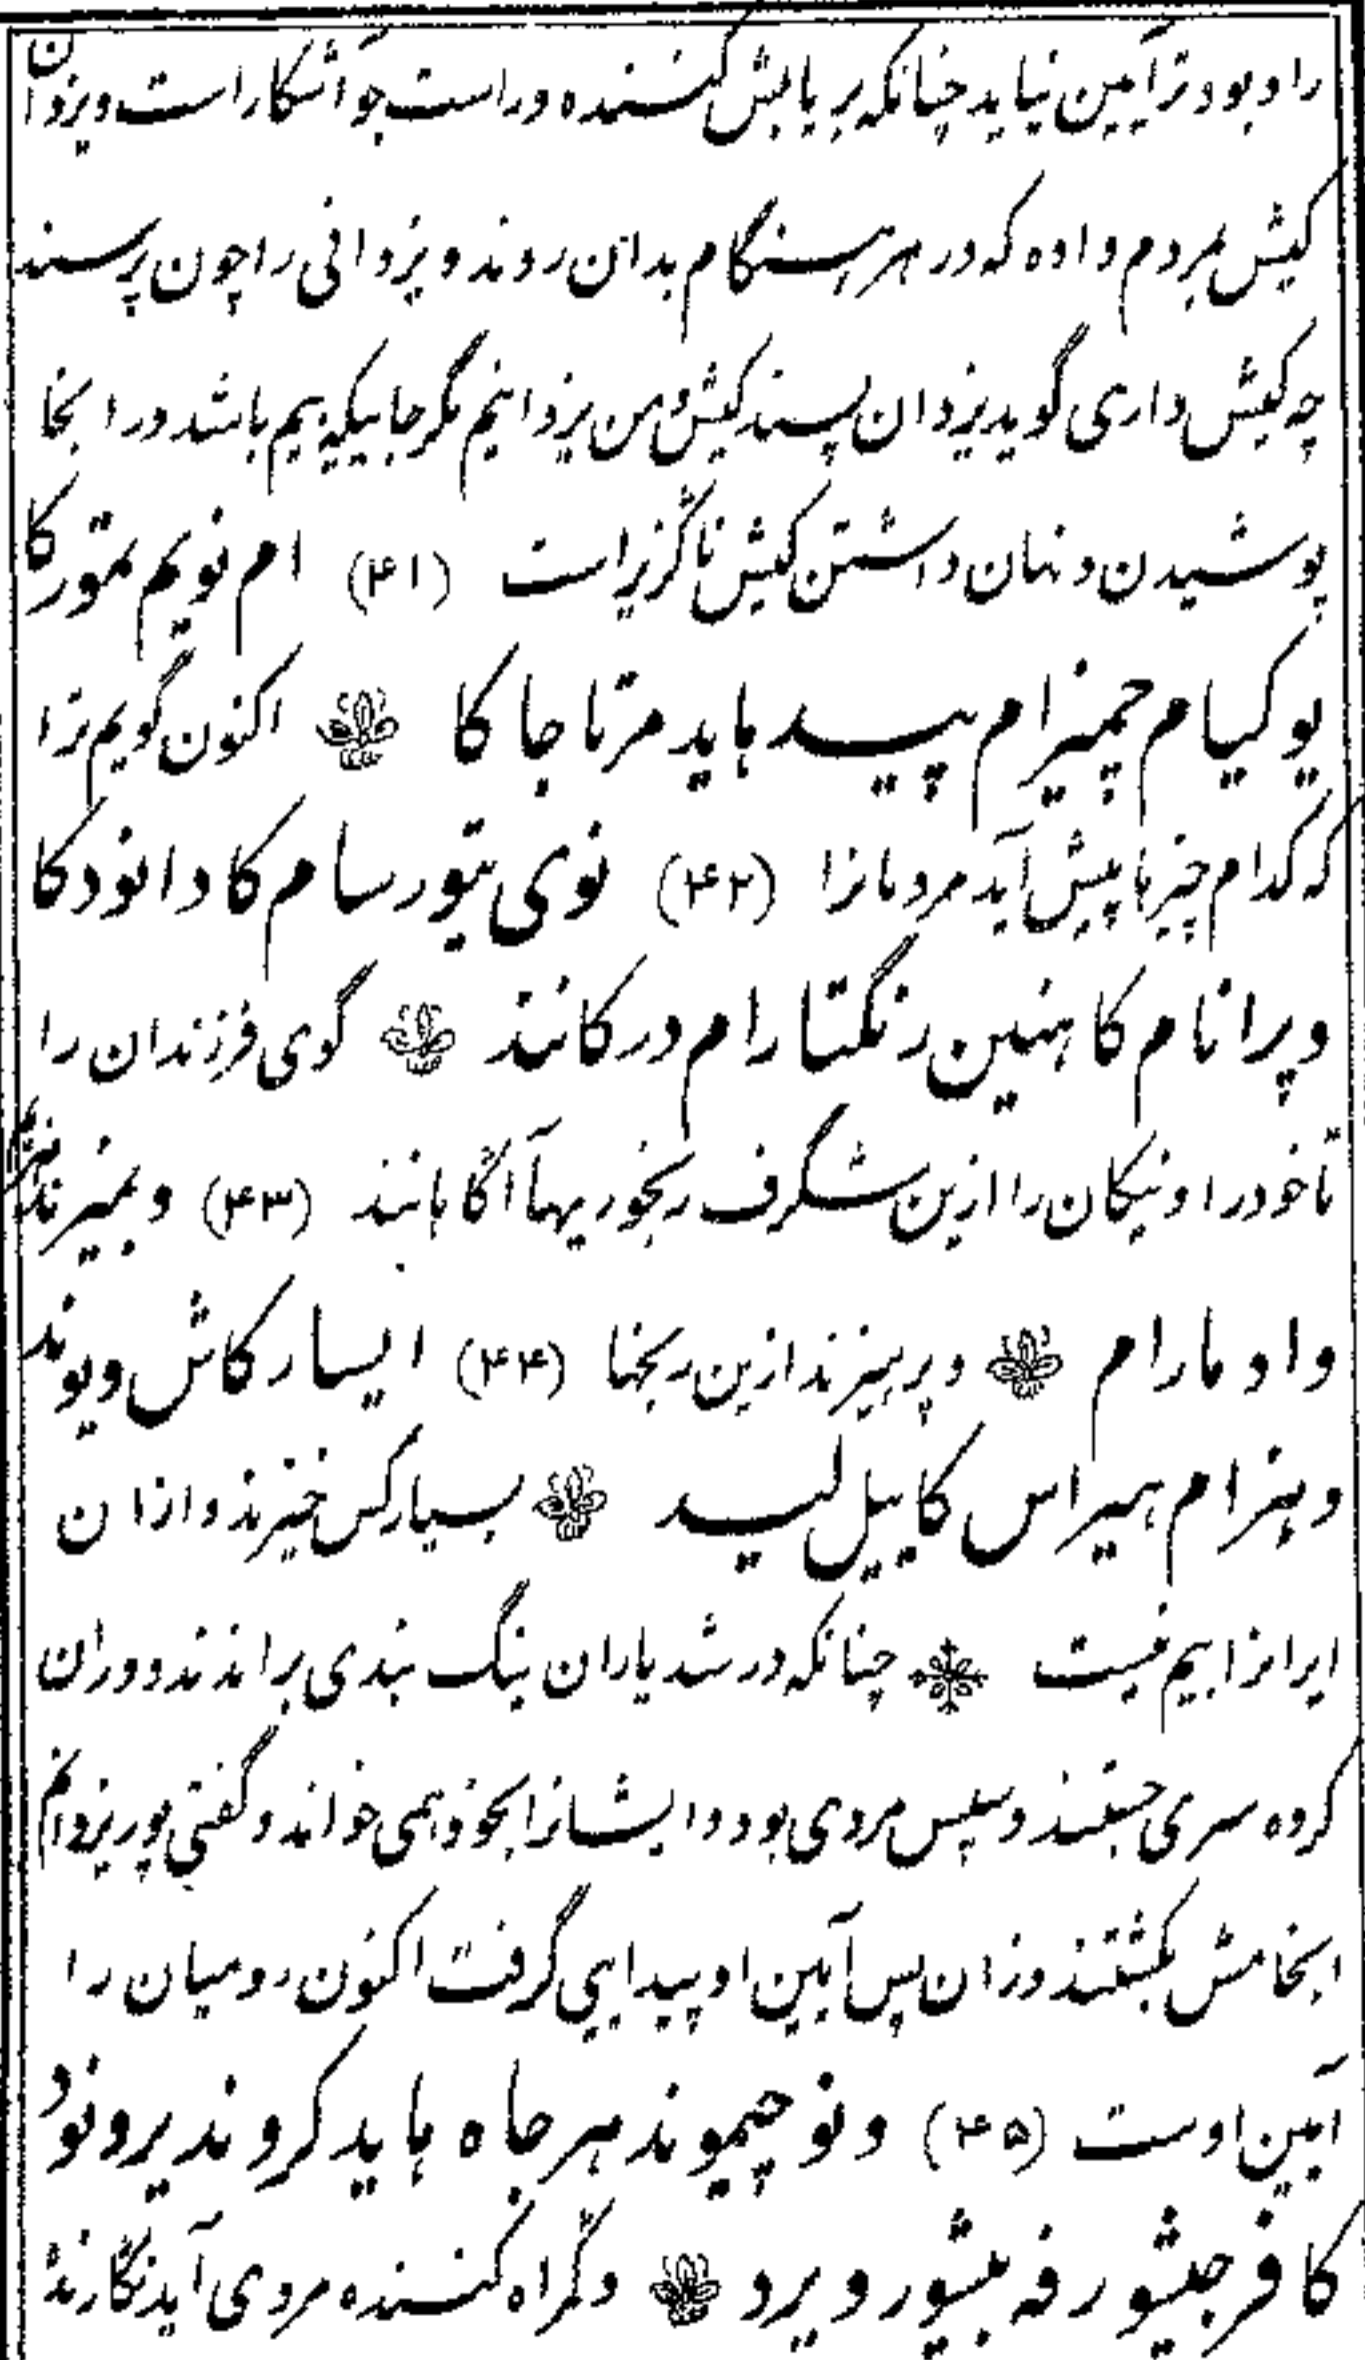 را و بود ترا آیین نیاید چنانکه بر یابش کننده و راست جو آشکار است و یزدان
کیش بمردم داده که در هر هنگام بدان روند و یزدانی را چون پرسند
چه کیش داری گوید یزدان پسند کیش و من یزدانیم مگر جاییکه بیم باشد در اینجا
پوشیدن و نهان داشتن کیش ناگزیر است (۴۱) ام نویم تمور کا
یو کیام چمیزام پیسد هاید مرتا جا کا اکنون گویم ترا
که کدام چیزها پیش آید مردمانرا (۴۲) نوی تیور سام کا دا نود کا
و پرا نام کا هنین رنگتا رام در کانند گوی فرزندان را
تا خود را و نیکان را ازین شگرف رنجوریها آگاهانند (۴۳) و بمیزند
وا و مارام و پرهیزند ازین رنجها (۴۴) ایسار کاش ویوند
و هزام همیراس کا بیل لیسد بسیار کس خیزند و از ان
ایرانرا بیم نیست چنانکه در شد یاران بنگ بندی براندند و دران
کروه سری جستند و سپس مردی بود و ایشانرا بخود همی خواند و گفتی پور یزدانم
انجامش بکشتند و زان پس آیین او پیدایی گرفت اکنون رومیان را
آیین اوست (۴۵) و نو چمیوند هر جاه هاید کروند یرو نود
کا فرجیشور فه بیشور و یرد و گمراه کننده مردی آید نگارنده